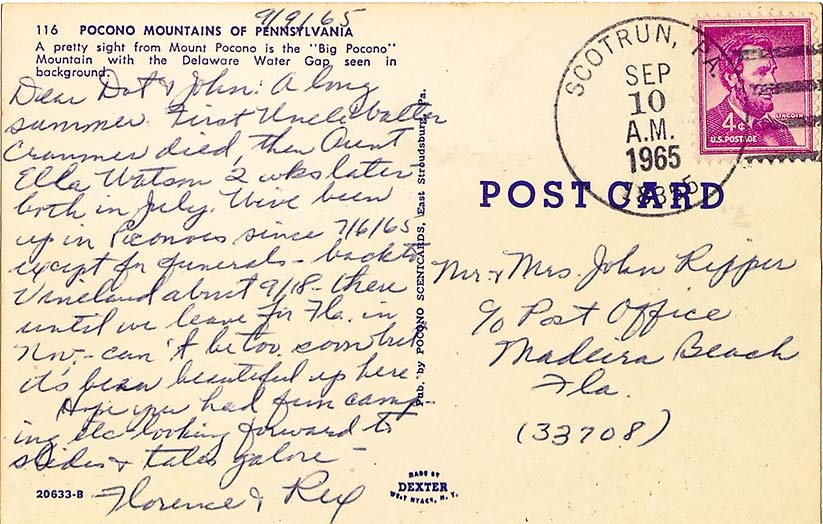 9/9/65
116 POCONO MOUNTAINS OF PENNSYLVANIA
A pretty sight from Mount Pocono is the "Big Pocono"
Mountain with the Delaware Water Gap seen in
background.
Dear Dot & John: A long
summer. First Uncle Walter
Crammer died, then Aunt
Ella Watson 2 wks later
both in July. We've been
up in Poconos since 7/6/65
except for funerals - back to
Vineland about 9/18 - there
until we leave for Fla. in
Nov. - can't be too soon but
it's been beautiful up here
Hope you had fun camp-
ing etc looking forward to
slides & tales galore -
Florence & Rex
20633-B
Pub. by POCONO SCENICARDS, East Stroudsburg, Pa.
MADE BY
DEXTER
WEST NYACK, N. Y.
SCOTRUN, PA.
SEP
10
A.M.
1965
4¢
LINCOLN
U.S. POSTAGE
POST CARD
Mr. & Mrs. John Ripper
c/o Post Office
Madeira Beach
Fla.
(33708)